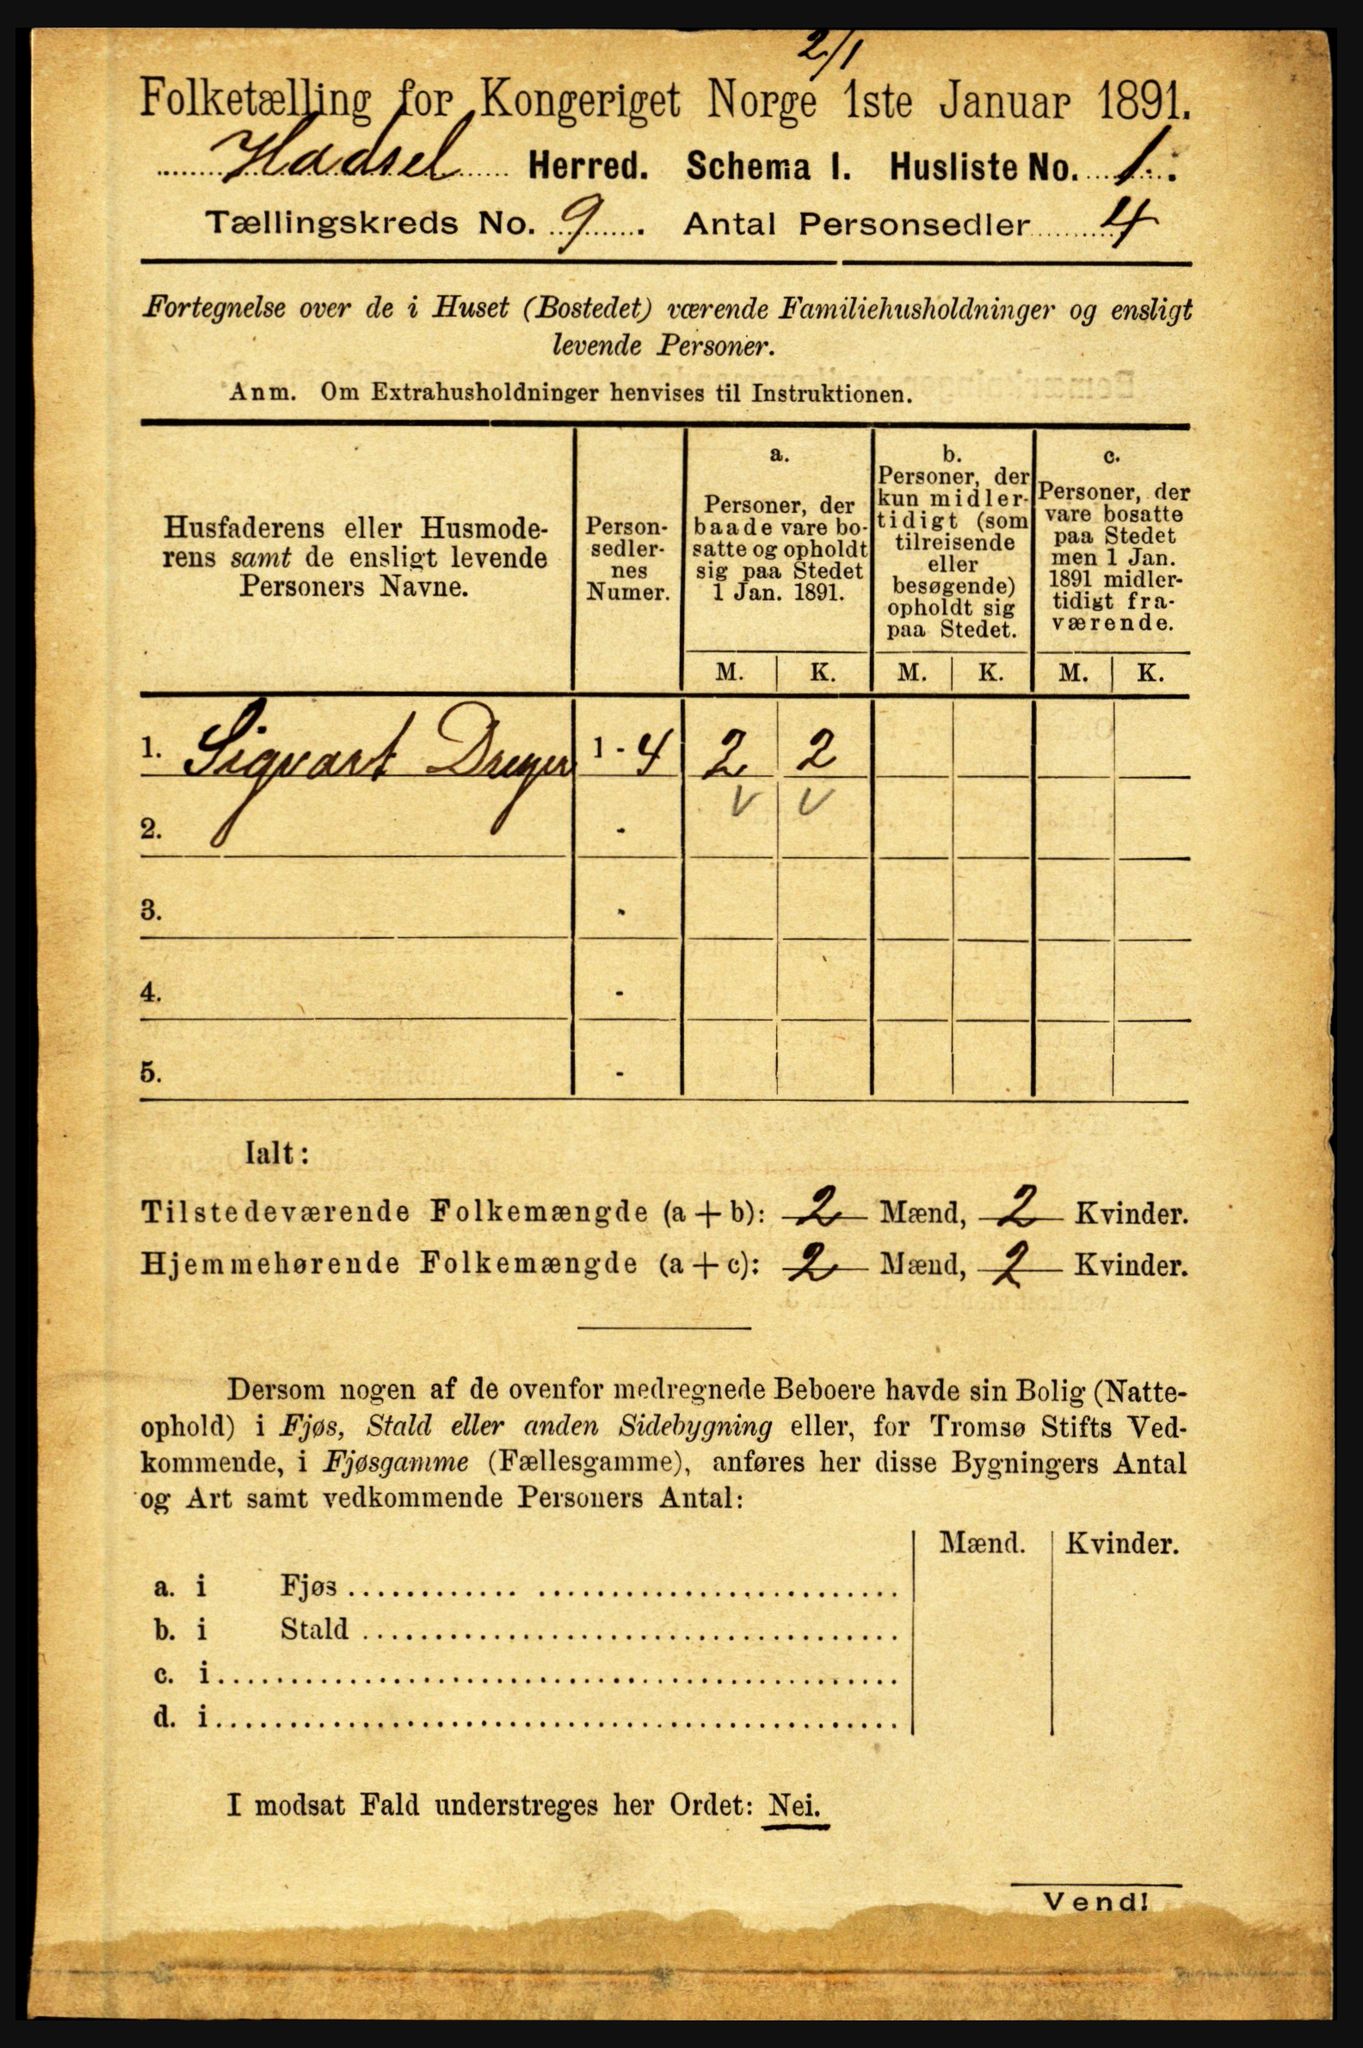 2/1
Folketælling for Kongeriget Norge 1ste Januar 1891.
Hadsel Herred. Schema I. Husliste No. 1.
Tællingskreds No. 9. Antal Personsedler 4
Fortegnelse over de i Huset (Bostedet) værende Familiehusholdninger og ensligt
levende Personer.
Anm. Om Extrahusholdninger henvises til Instruktionen.
Husfaderens eller Husmode-
rens samt de ensligt levende
Personers Navne.
Person-
sedler-
nes
Numer.
a.
Personer, der
baade vare bo-
satte og opholdt
sig paa Stedet
1 Jan. 1891.
b.
Personer, der
kun midler-
tidigt (som
tilreisende
eller
besøgende)
opholdt sig
paa Stedet.
c.
Personer, der
vare bosatte
paa Stedet
men 1 Jan.
1891 midler-
tidigt fra-
værende.
M. K. M. K. M. K.
1. Sigvart Dreyer 1 - 4 2 2
2. -
3. -
4. -
5. -
Ialt:
Tilstedeværende Folkemængde (a + b): 2 Mænd, 2 Kvinder.
Hjemmehørende Folkemængde (a + c): 2 Mænd, 2 Kvinder.
Dersom nogen af de ovenfor medregnede Beboere havde sin Bolig (Natte-
ophold) i Fjøs, Stald eller anden Sidebygning eller, for Tromsø Stifts Ved-
kommende, i Fjøsgamme (Fællesgamme), anføres her disse Bygningers Antal
og Art samt vedkommende Personers Antal:
Mænd. Kvinder.
a. i Fjøs
b. i Stald
c. i
d. i
I modsat Fald understreges her Ordet: Nei.
Vend!